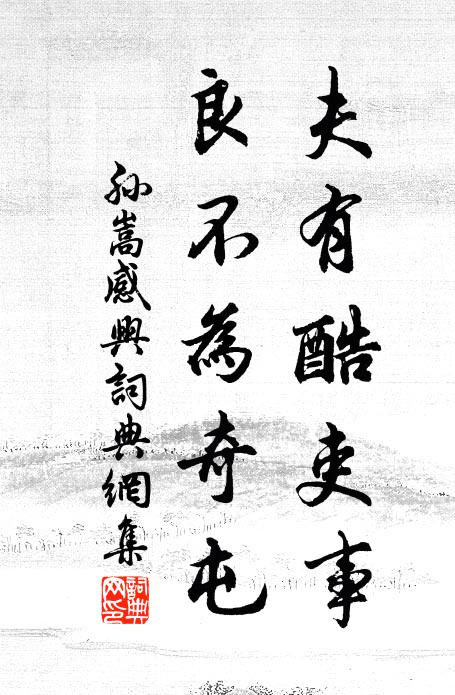 夫有酷吏事
良不為奇屯
孫嵩感興詞典網集
詞典网印